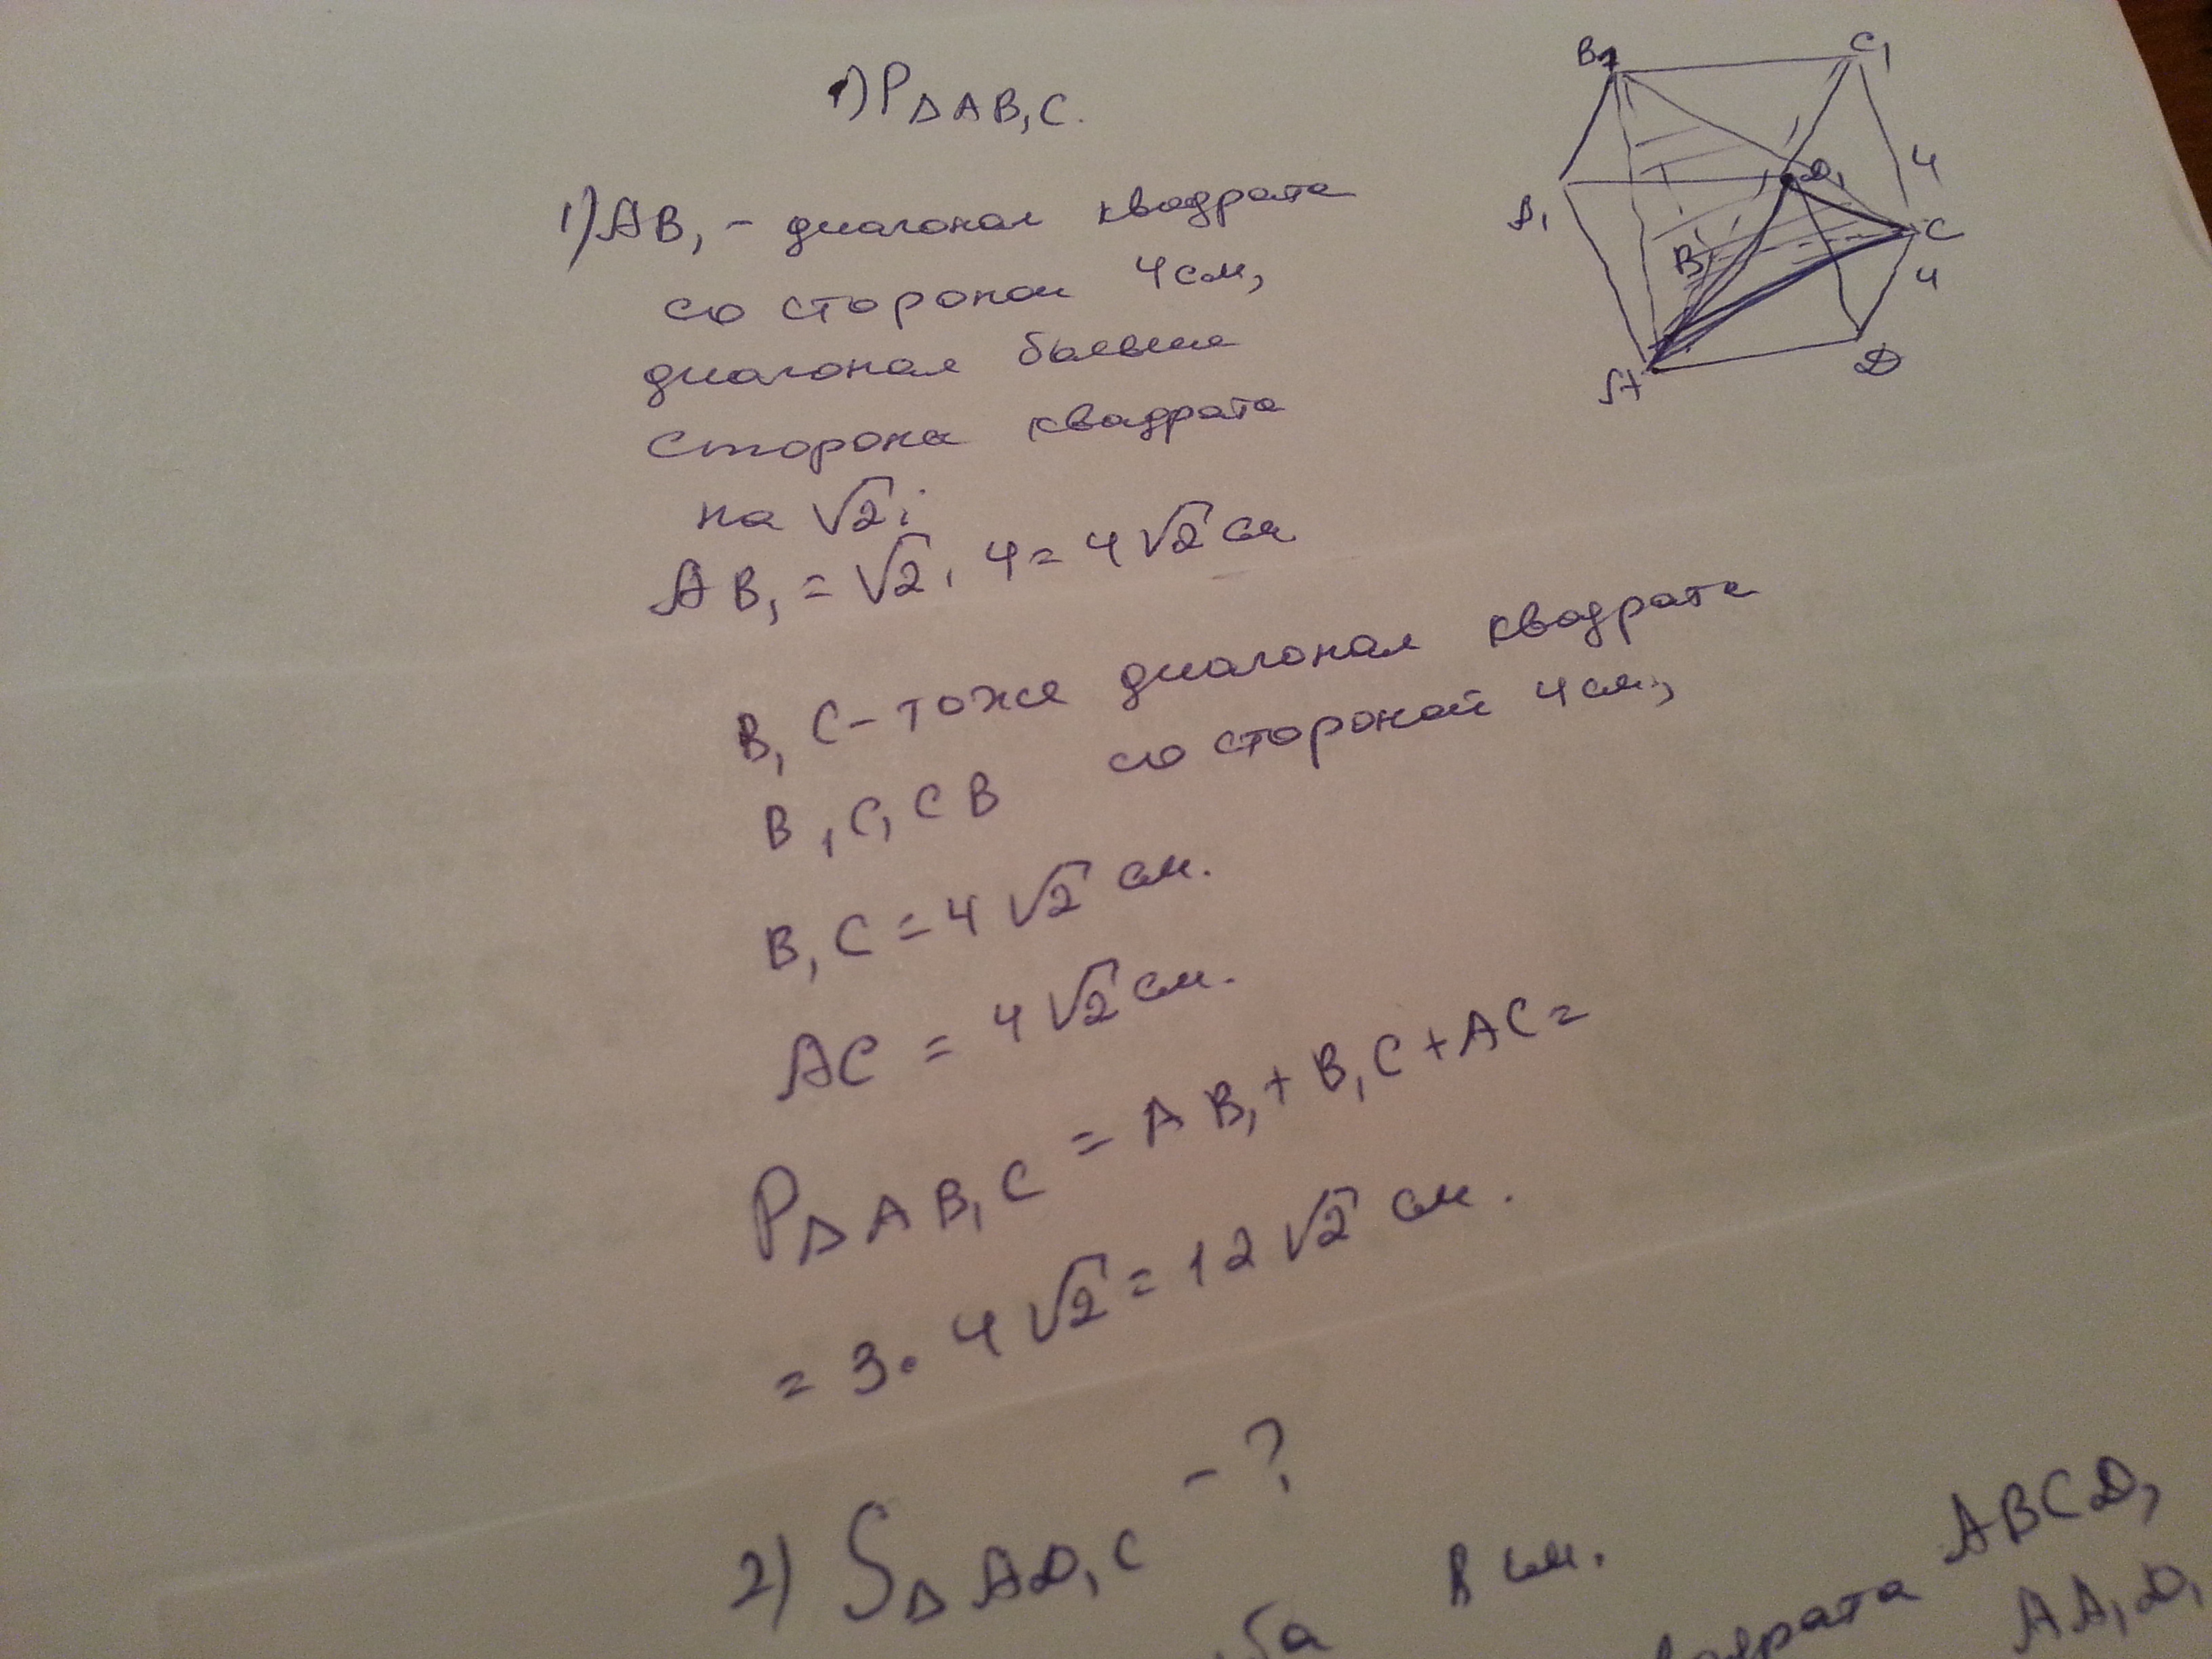 1) P∆AB₁C.
B₁
C₁
1) AB₁ - диагонал квадрата
4
D₁
A₁
C
B
со стороной 4 см,
4
диагонал больше
D
A
стороны квадрата
на √2;
AB₁ = √2 · 4 = 4√2 см
B₁C - тоже диагонал квадрата
B₁C₁CB со стороной 4 см,
B₁C = 4√2 см.
AC = 4√2 см.
P∆AB₁C = AB₁ + B₁C + AC =
= 3 · 4√2 = 12√2 см.
2) S∆AD₁C - ?
см.
ABCD,
AA₁D₁